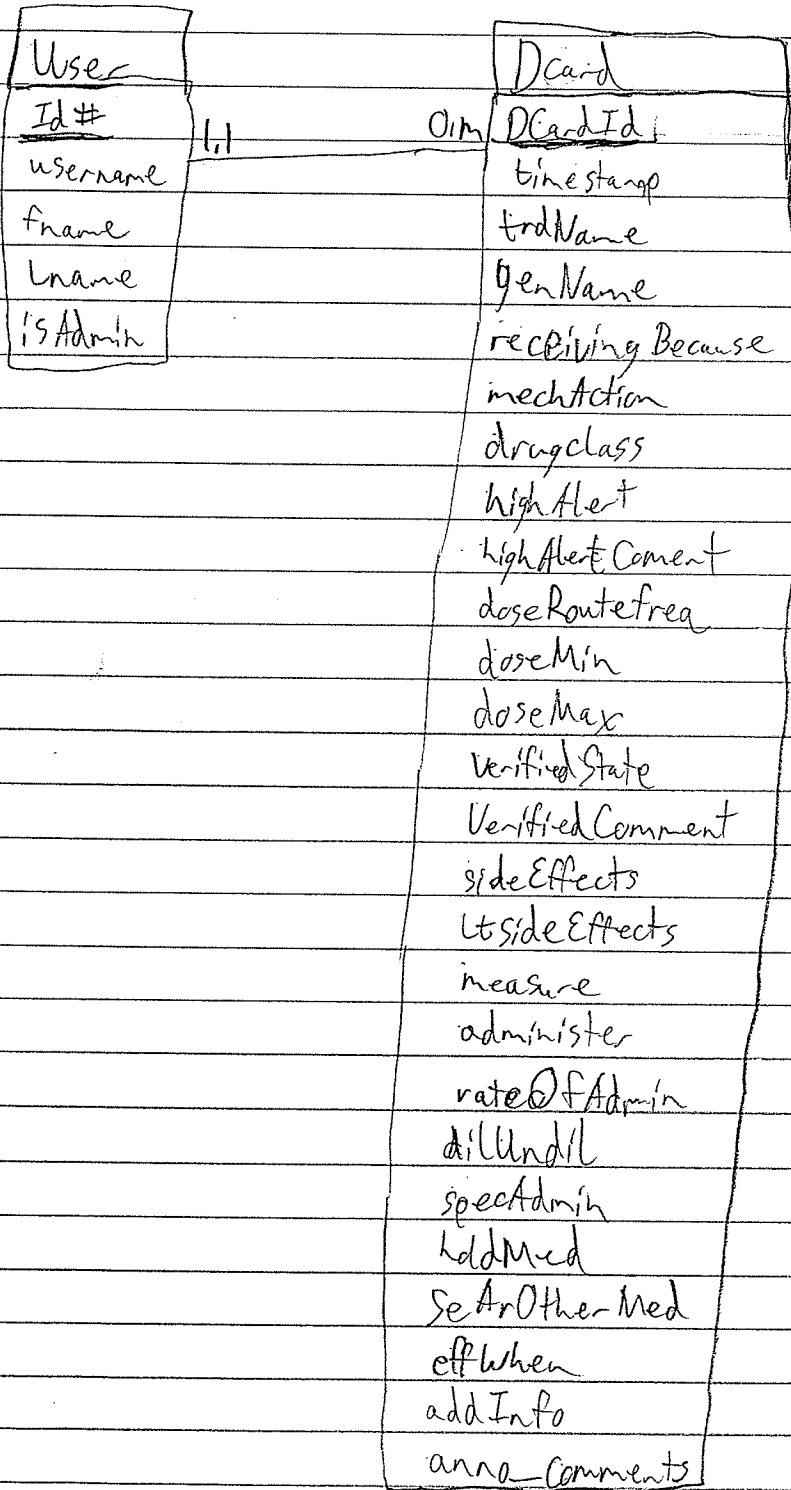 User
Id#
username
fname
Lname
isAdmin
1,1
0,m
DCard
DCardId
timestamp
trdName
genName
receivingBecause
mechAction
drugclass
highAlert
highAlertComent
doseRoutefreq
doseMin
doseMax
VerifiedState
VerifiedComment
sideEffects
LtsideEffects
measure
administer
rateOfAdmin
dilUndil
specAdmin
holdMed
SeArOtherMed
effWhen
addInfo
anno_comments